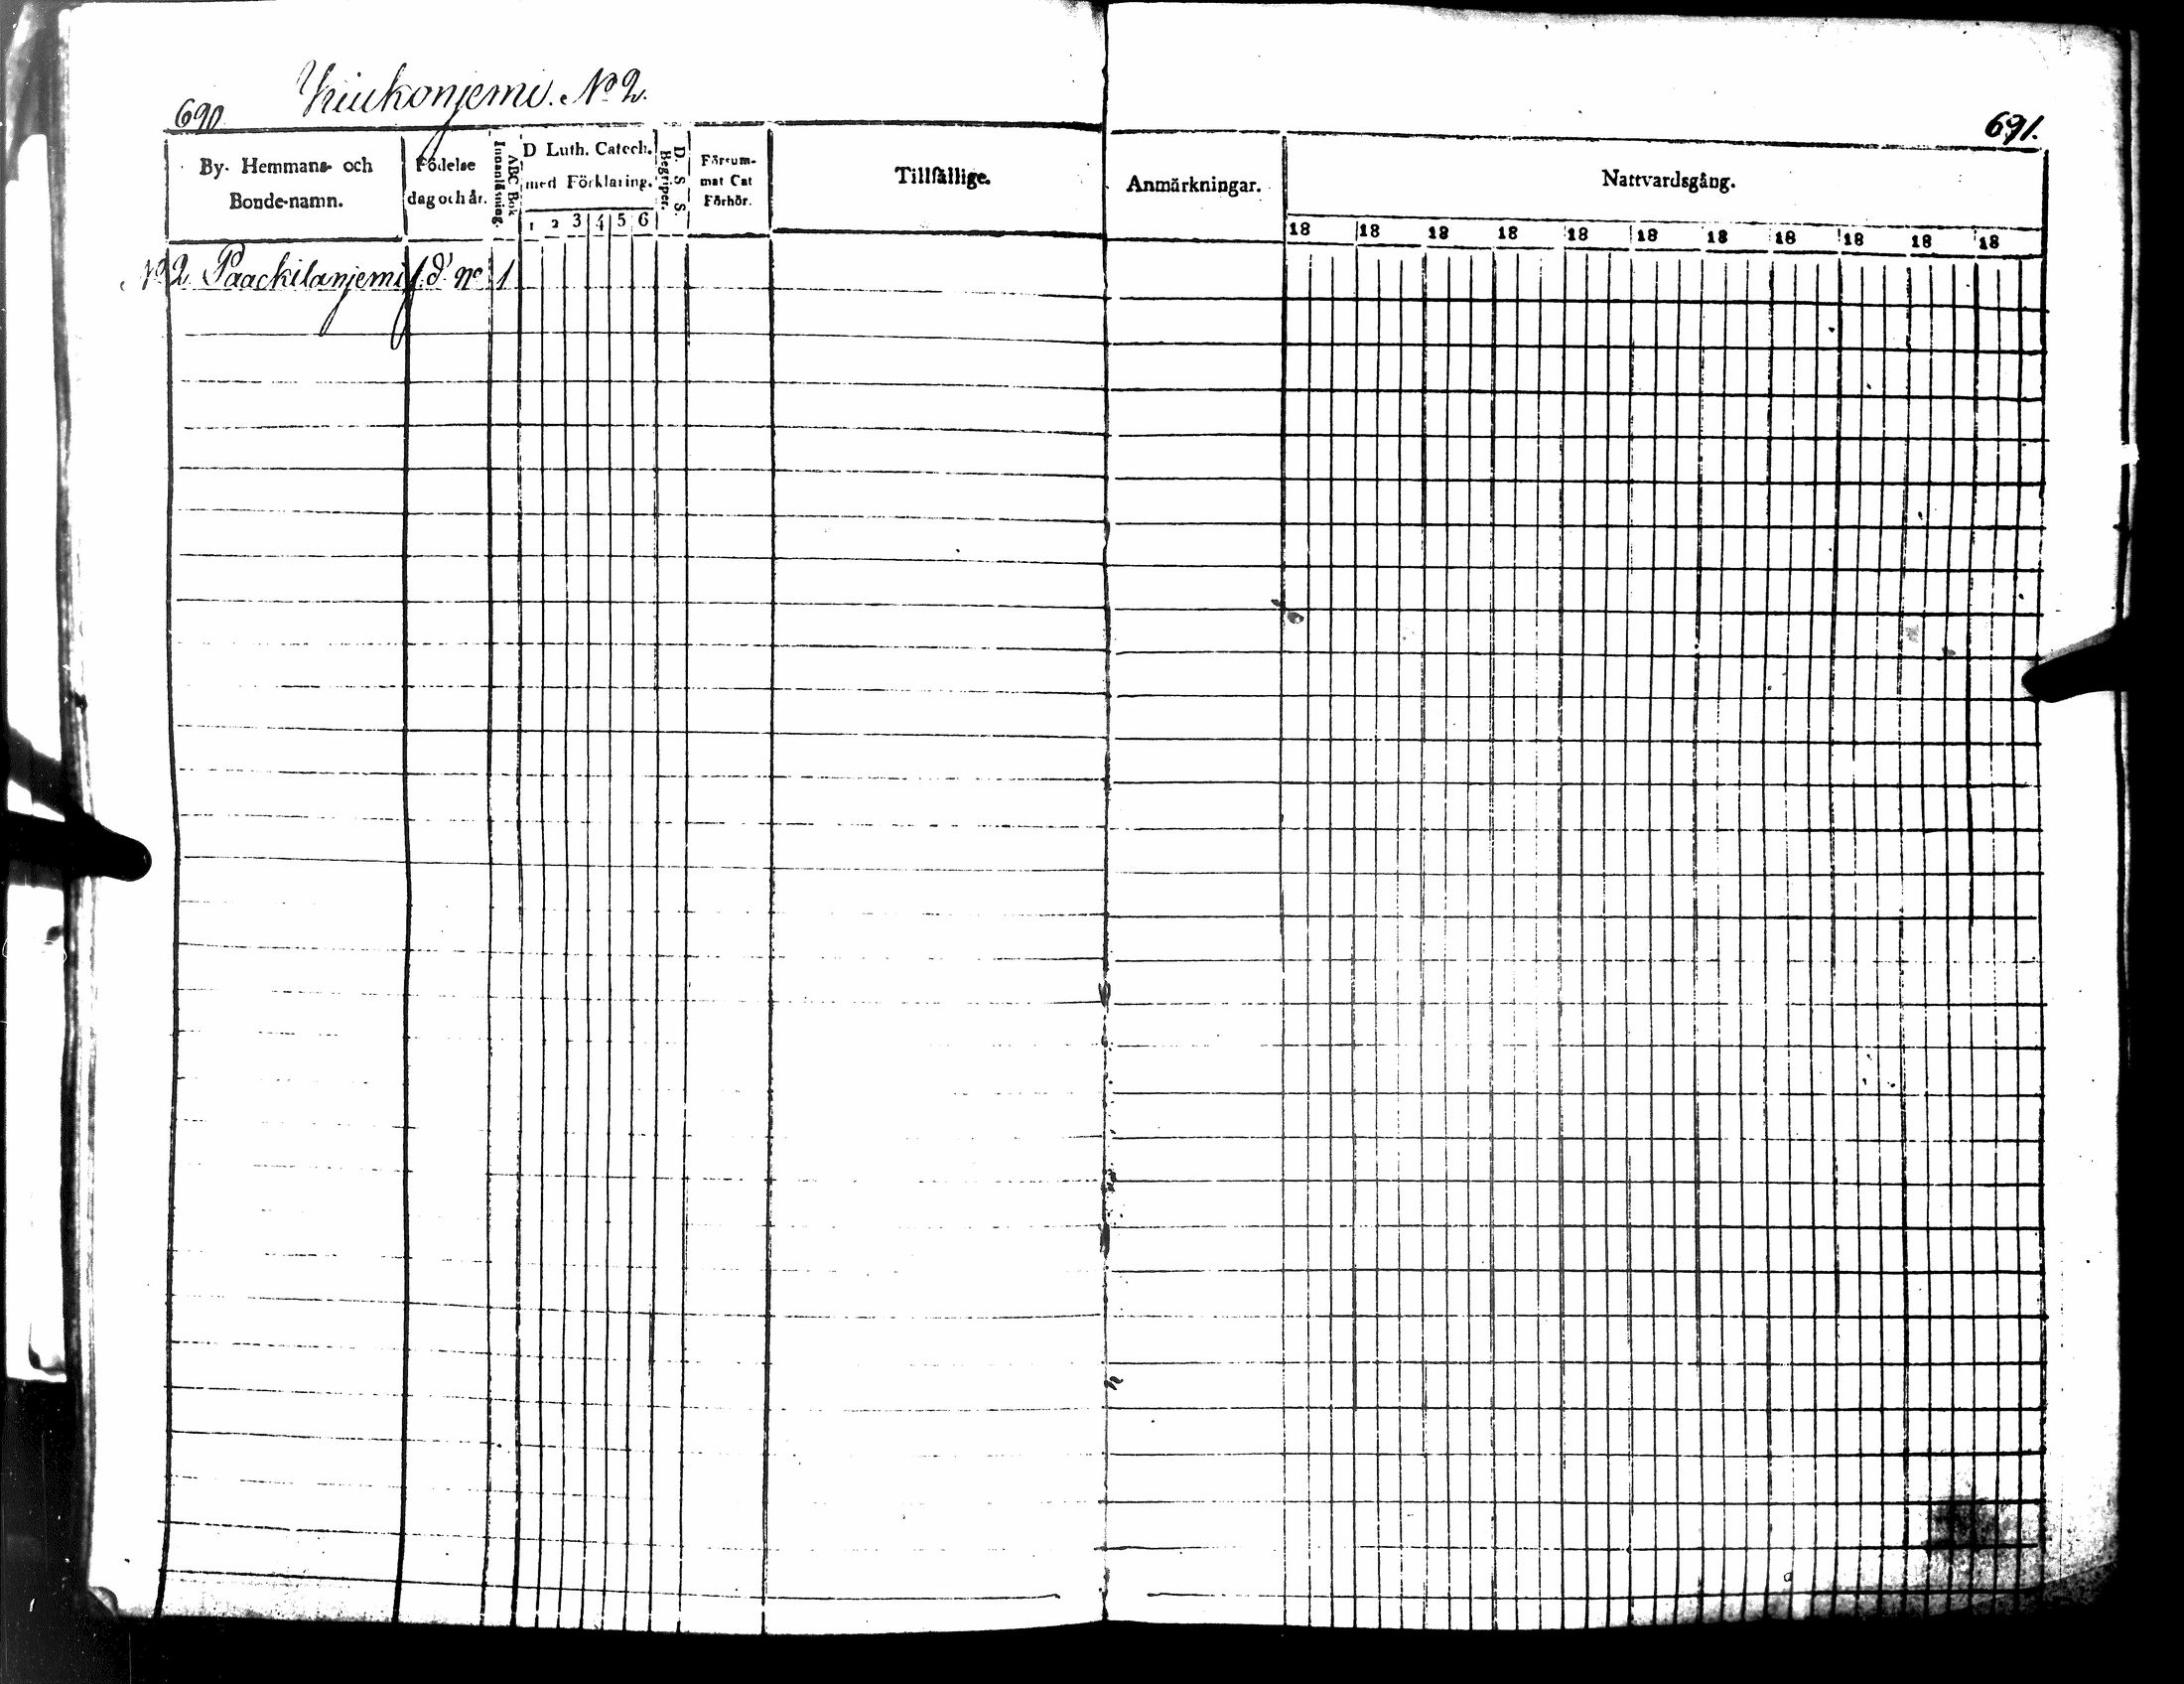 690 Kiukonjemi. No 2.
691.
By- Hemmans- och Bonde-namn.
Födelse dag och år.
ABC Bok Innanläsning.
D Luth. Catech. med Förklaring.
1 2 3 4 5 6
D. S. S. Begriper.
Försum- mat Cat Förhör.
Tillfällige.
Anmärkningar.
Nattvardsgång.
18 18 18 18 18 18 18 18 18 18 18
No 2 Paackilanjemi f.d. No 1